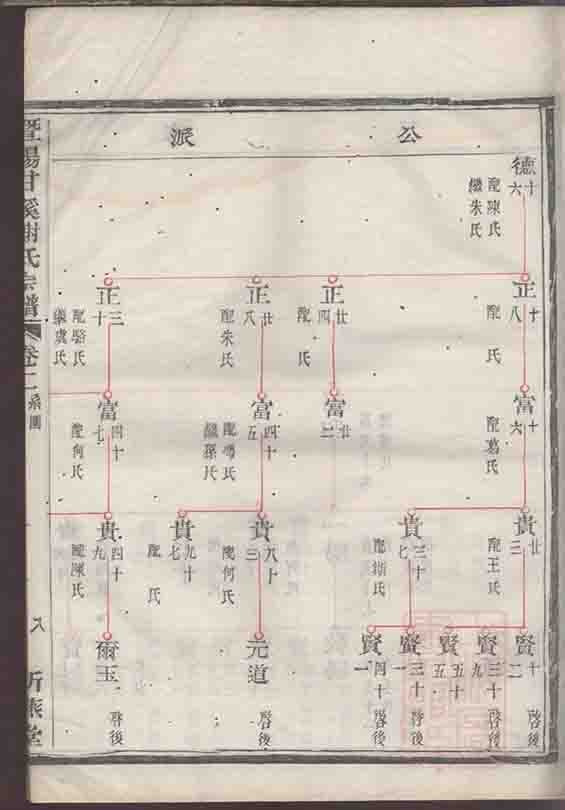 公派
德十六
配陳氏
繼朱氏
正十八
配氏
正廿四
配氏
正廿八
配朱氏
正三十
配駱氏
繼虞氏
富十六
配葛氏
富廿二
富四十五
繼孫氏
富四十七
配何氏
貴廿三
配王氏
貴三十七
貴八十三
配何氏
貴九十七
配氏
貴四十九
配陳氏
賢十二
啓後
賢三十九
賢五十五
賢三十一
啓後
賢四十一
啓後
元道
啓後
爾玉
啓後
暨陽甘溪謝氏宗譜
卷十一
系圖